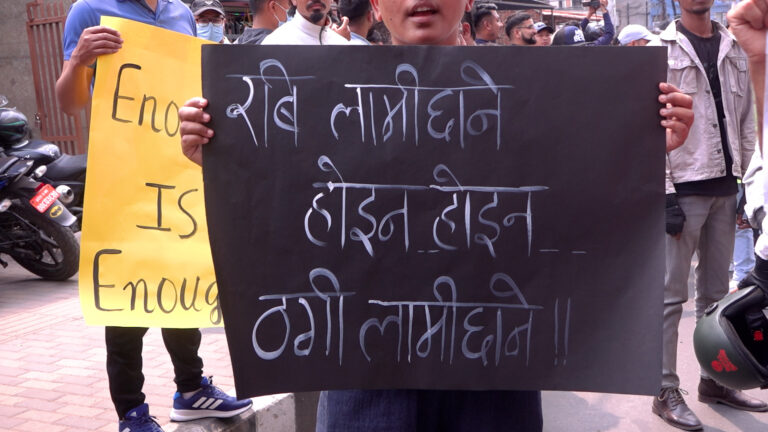 Enough
IS
Enough
रबि लामीछाने
होइन__होइन__
ठगी लामीछाने!!